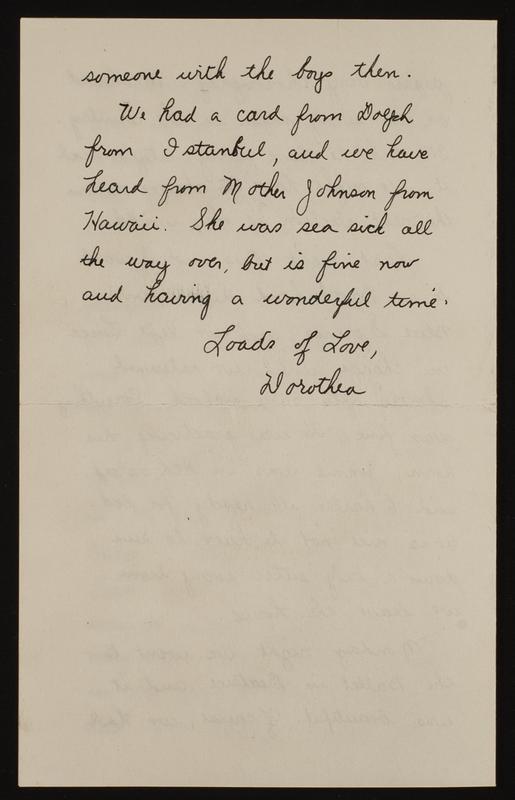 someone with the boys then.
We had a card from Dolph
from Istanbul, and we have
heard from Mother Johnson from
Hawaii. She was sea sick all
the way over, but is fine now
and having a wonderful time.
Loads of Love,
Dorothea